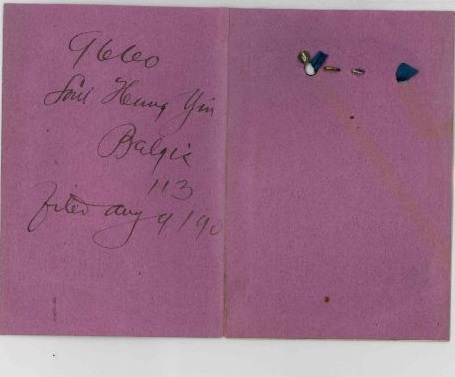 9660
Soui Hung Yin
Balgic
113
filed Aug 9/90